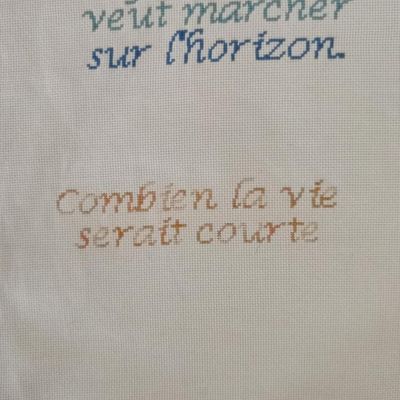 veut marcher
sur l'horizon.
Combien la vie
serait courte